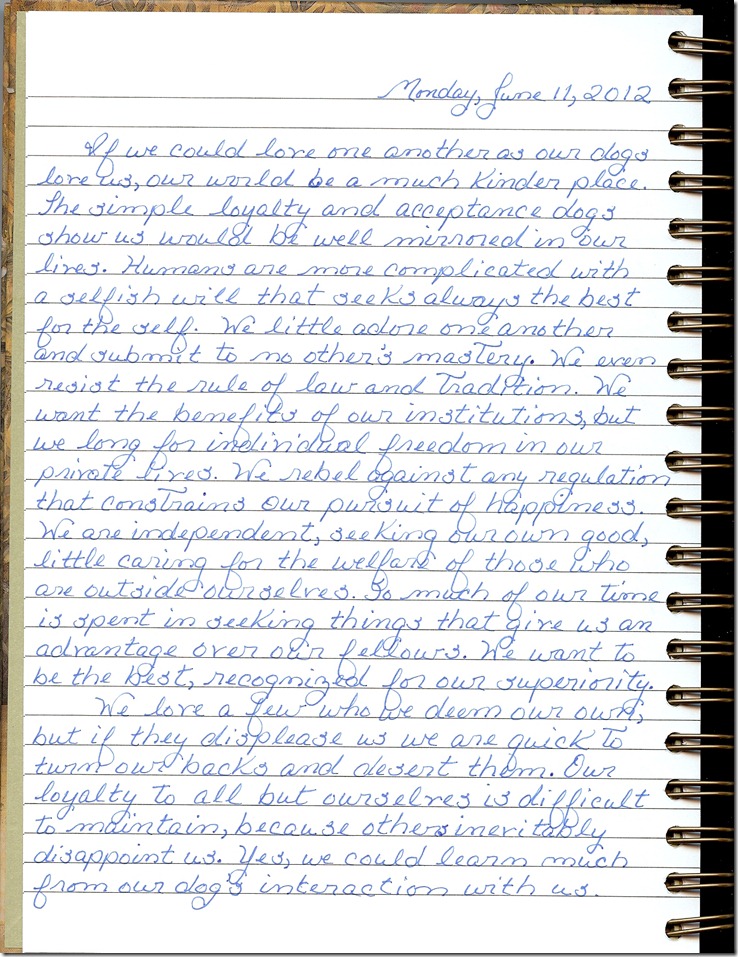 Monday, June 11, 2012
If we could love one another as our dogs
love us, our world be a much kinder place.
The simple loyalty and acceptance dogs
show us would be well mirrored in our
lives. Humans are more complicated with
a selfish will that seeks always the best
for the self. We little adore one another
and submit to no other's mastery. We even
resist the rule of law and Tradition. We
want the benefits of our institutions, but
we long for individual freedom in our
private lives. We rebel against any regulation
that constrains our pursuit of happiness.
We are independent, seeking our own good,
little caring for the welfare of those who
are outside ourselves. So much of our time
is spent in seeking things that give us an
advantage over our fellows. We want to
be the best, recognized for our superiority.
We love a few who we deem our own,
but if they displease us we are quick to
turn our backs and desert them. Our
loyalty to all but ourselves is difficult
to maintain, because others inevitably
disappoint us. Yes, we could learn much
from our dog's interaction with us.